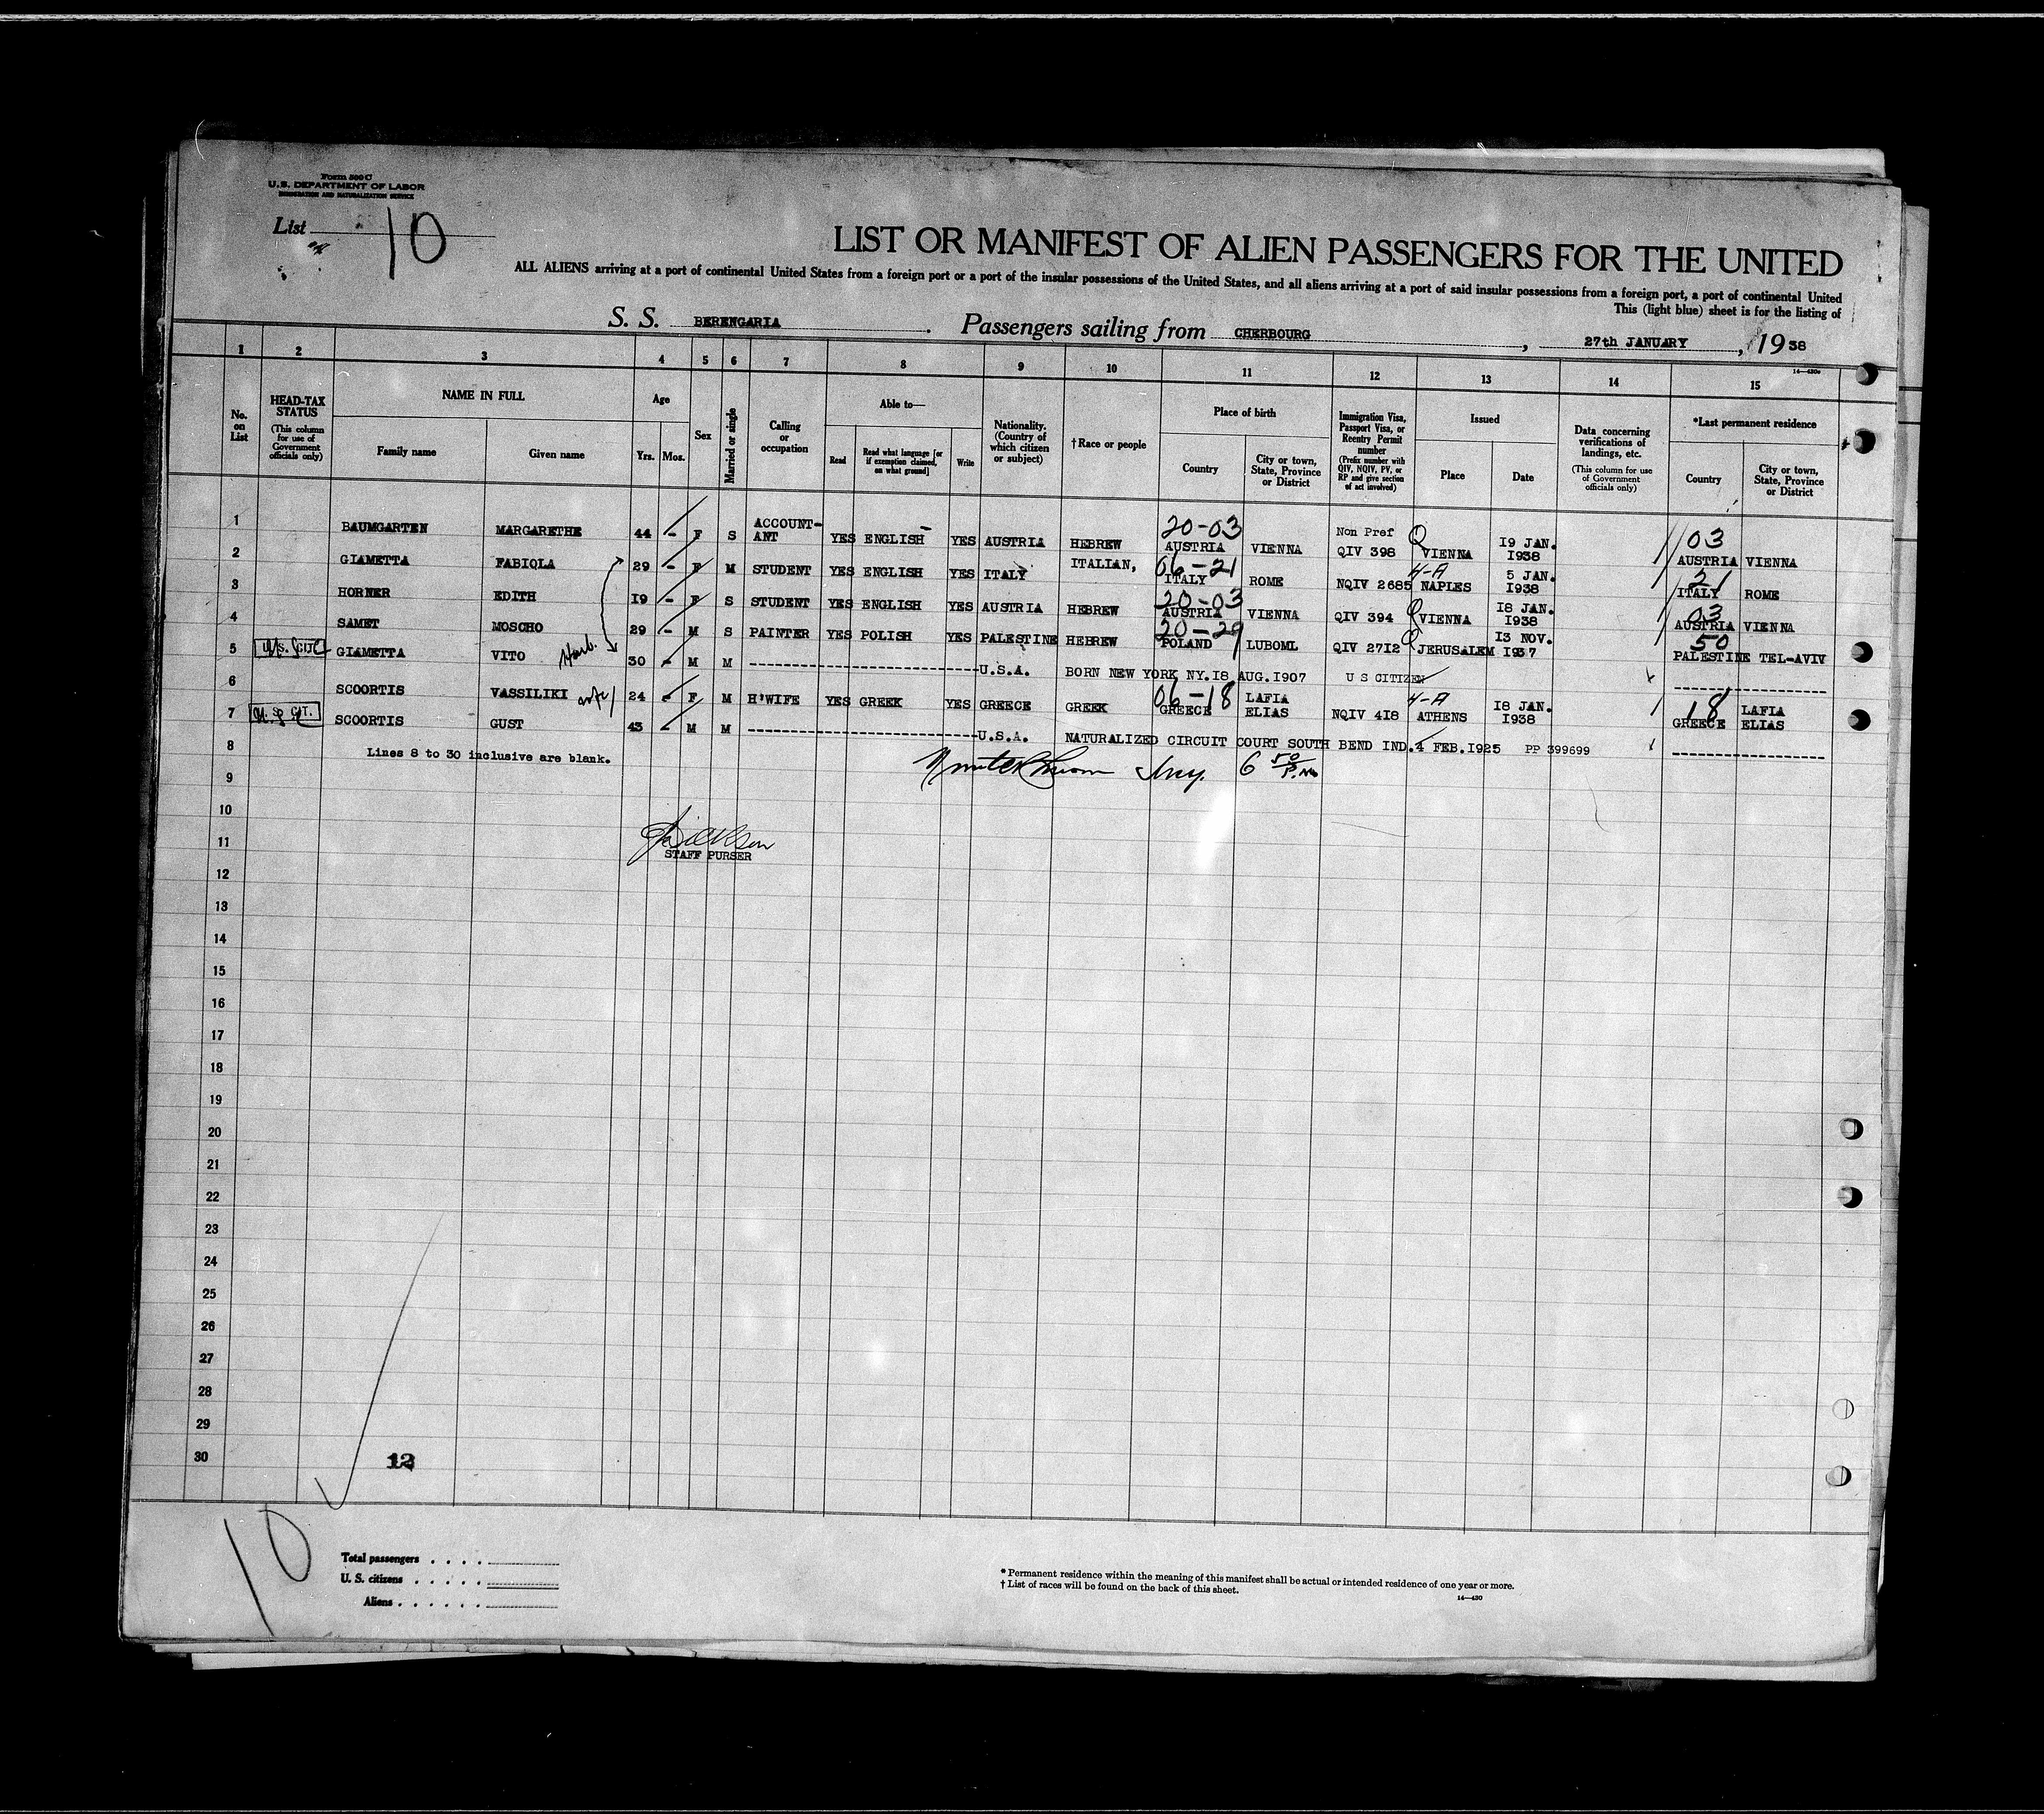 Form 500 C
U.S. DEPARTMENT OF LABOR
IMMIGRATION AND NATURALIZATION SERVICE
List 10
LIST OR MANIFEST OF ALIEN PASSENGERS FOR THE UNITED
ALL ALIENS arriving at a port of continental United States from a foreign port or a port of the insular possessions of the United States, and all aliens arriving at a port of said insular possessions from a foreign port, a port of continental United
This (light blue) sheet is for the listing of
S. S. BERENGARIA. Passengers sailing from CHERBOURG, 27th JANUARY, 1938
14—430a
1 2 3 4 5 6 7 8 9 10 11 12 13 14 15
No. on List
HEAD-TAX STATUS (This column for use of Government officials only)
NAME IN FULL
Family name Given name
Age
Yrs. Mos.
Sex
Married or single
Calling or occupation
Able to—
Read
Read what language [or if exemption claimed, on what ground]
Write
Nationality. (Country of which citizen or subject)
† Race or people
Place of birth
Country
City or town, State, Province or District
Immigration Visa, Passport Visa, or Reentry Permit number (Prefix number with QIV, NQIV, PV, or RP and give section of act involved)
Issued
Place Date
Data concerning verifications of landings, etc. (This column for use of Government officials only)
*Last permanent residence
Country
City or town, State, Province or District
1 BAUMGARTEN MARGARETHE 44 - F S ACCOUNT-ANT YES ENGLISH YES AUSTRIA HEBREW 20-03 AUSTRIA VIENNA Non Pref QIV 398 Q VIENNA 19 JAN. 1938 03 AUSTRIA VIENNA
2 GIAMETTA FABIOLA 29 - F M STUDENT YES ENGLISH YES ITALY ITALIAN, 06-21 ITALY ROME NQIV 2685 4-A NAPLES 5 JAN. 1938 21 ITALY ROME
3 HORNER EDITH 19 - F S STUDENT YES ENGLISH YES AUSTRIA HEBREW 20-03 AUSTRIA VIENNA QIV 394 Q VIENNA 18 JAN. 1938 03 AUSTRIA VIENNA
4 SAMET MOSCHO 29 - M S PAINTER YES POLISH YES PALESTINE HEBREW 20-29 POLAND LUBOML QIV 2712 Q JERUSALEM 13 NOV. 1937 50 PALESTINE TEL-AVIV
5 U.S. CIT. GIAMETTA VITO Husb. 30 - M M U.S.A. BORN NEW YORK NY. 18 AUG. 1907 U S CITIZEN
6 SCOORTIS VASSILIKI wife 24 - F M H'WIFE YES GREEK YES GREECE GREEK 06-18 GREECE LAFIA ELIAS NQIV 418 4-A ATHENS 18 JAN. 1938 18 GREECE LAFIA ELIAS
7 U.S. CIT. SCOORTIS GUST 43 - M M U.S.A. NATURALIZED CIRCUIT COURT SOUTH BEND IND. 4 FEB. 1925 PP 399699
8 Lines 8 to 30 inclusive are blank.
6 50 P.M
9
10
11
STAFF PURSER
12
13
14
15
16
17
18
19
20
21
22
23
24
25
26
27
28
29
30
12
10
Total passengers
U. S. citizens
Aliens
* Permanent residence within the meaning of this manifest shall be actual or intended residence of one year or more.
† List of races will be found on the back of this sheet.
14—430